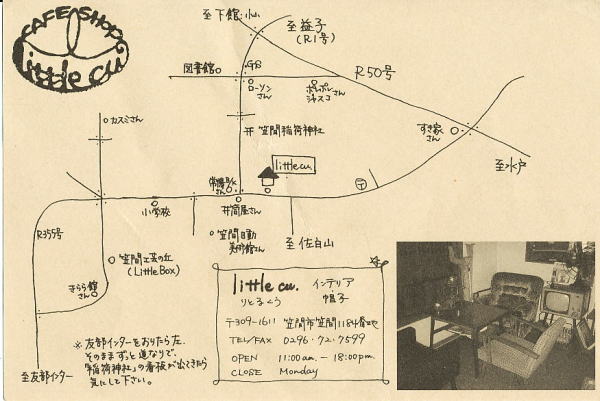 CAFE SHOP
little cu.
至下館・小山
至益子
(R1号)
図書館
GS
ローソン
さん
ポレポレ
ジャスコ
さん
R50号
カスミさん
笠間稲荷神社
すき家
さん
至水戸
little cu.
常陽BK
さん
〒
小学校
井筒屋さん
R355号
笠間日動
美術館さん
至佐白山
笠間工芸の丘
(Little Box)
きらら館
さん
至友部インター
※友部インターをおりたら左、
そのままずっと道なりで、
「稲荷神社」の看板が出てきたら
気にして下さい。
little cu. インテリア
りとるくう 帽子
〒309-1611 笠間市笠間1184番地
TEL/FAX 0296・72・7599
OPEN 11:00am.－18:00pm.
CLOSE Monday